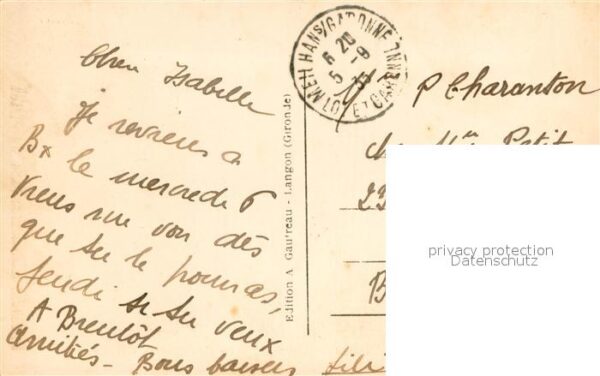 Chere Isabelle
Je reviens a
Bx le mercredi 6
Viens me voir dès
que tu le pourras,
Jeudi si tu veux
A Bientôt
Amitiés - Bons baisers
MEILHANS/GARONNE
6 20
5 -9
LOT ET GARONNE
Edition A. Gautreau - Langon (Gironde)
P Charanton
Petit
23
B
privacy protection
Datenschutz